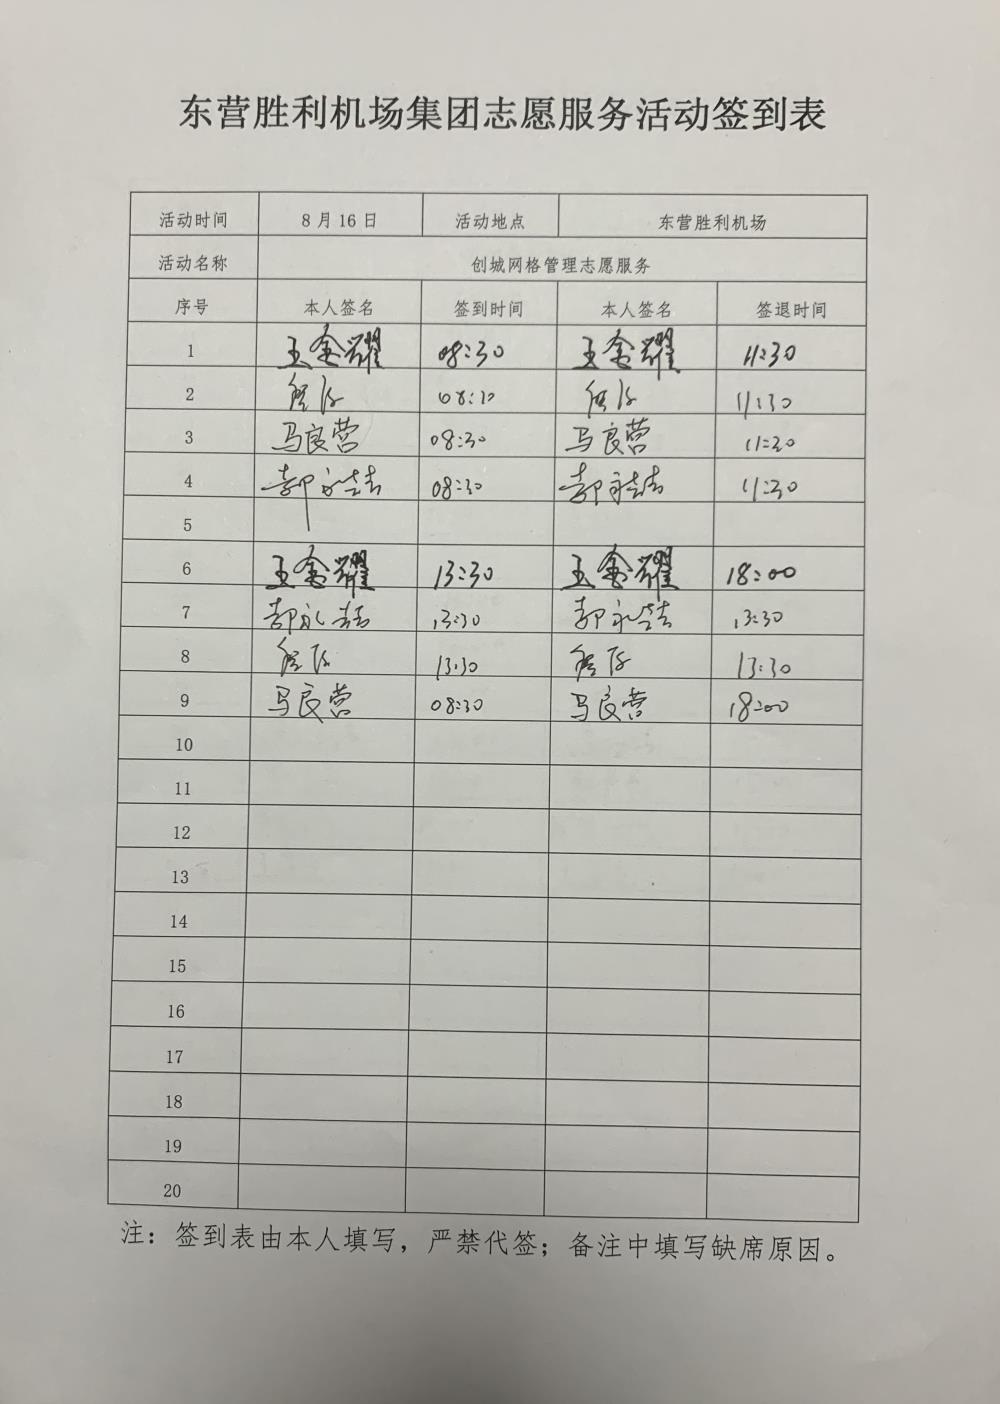 东营胜利机场集团志愿服务活动签到表
活动时间 8月16日 活动地点 东营胜利机场
活动名称 创城网格管理志愿服务
序号 本人签名 签到时间 本人签名 签退时间
1 王金耀 08:30 王金耀 11:30
2 08:30 11:30
3 马良营 08:30 马良营 11:30
4 郭永喆 08:30 郭永喆 11:30
5
6 王金耀 13:30 王金耀 18:00
7 郭永喆 13:30 郭永喆 13:30
8 13:30 13:30
9 马良营 08:30 马良营 18:00
10
11
12
13
14
15
16
17
18
19
20
注：签到表由本人填写，严禁代签；备注中填写缺席原因。